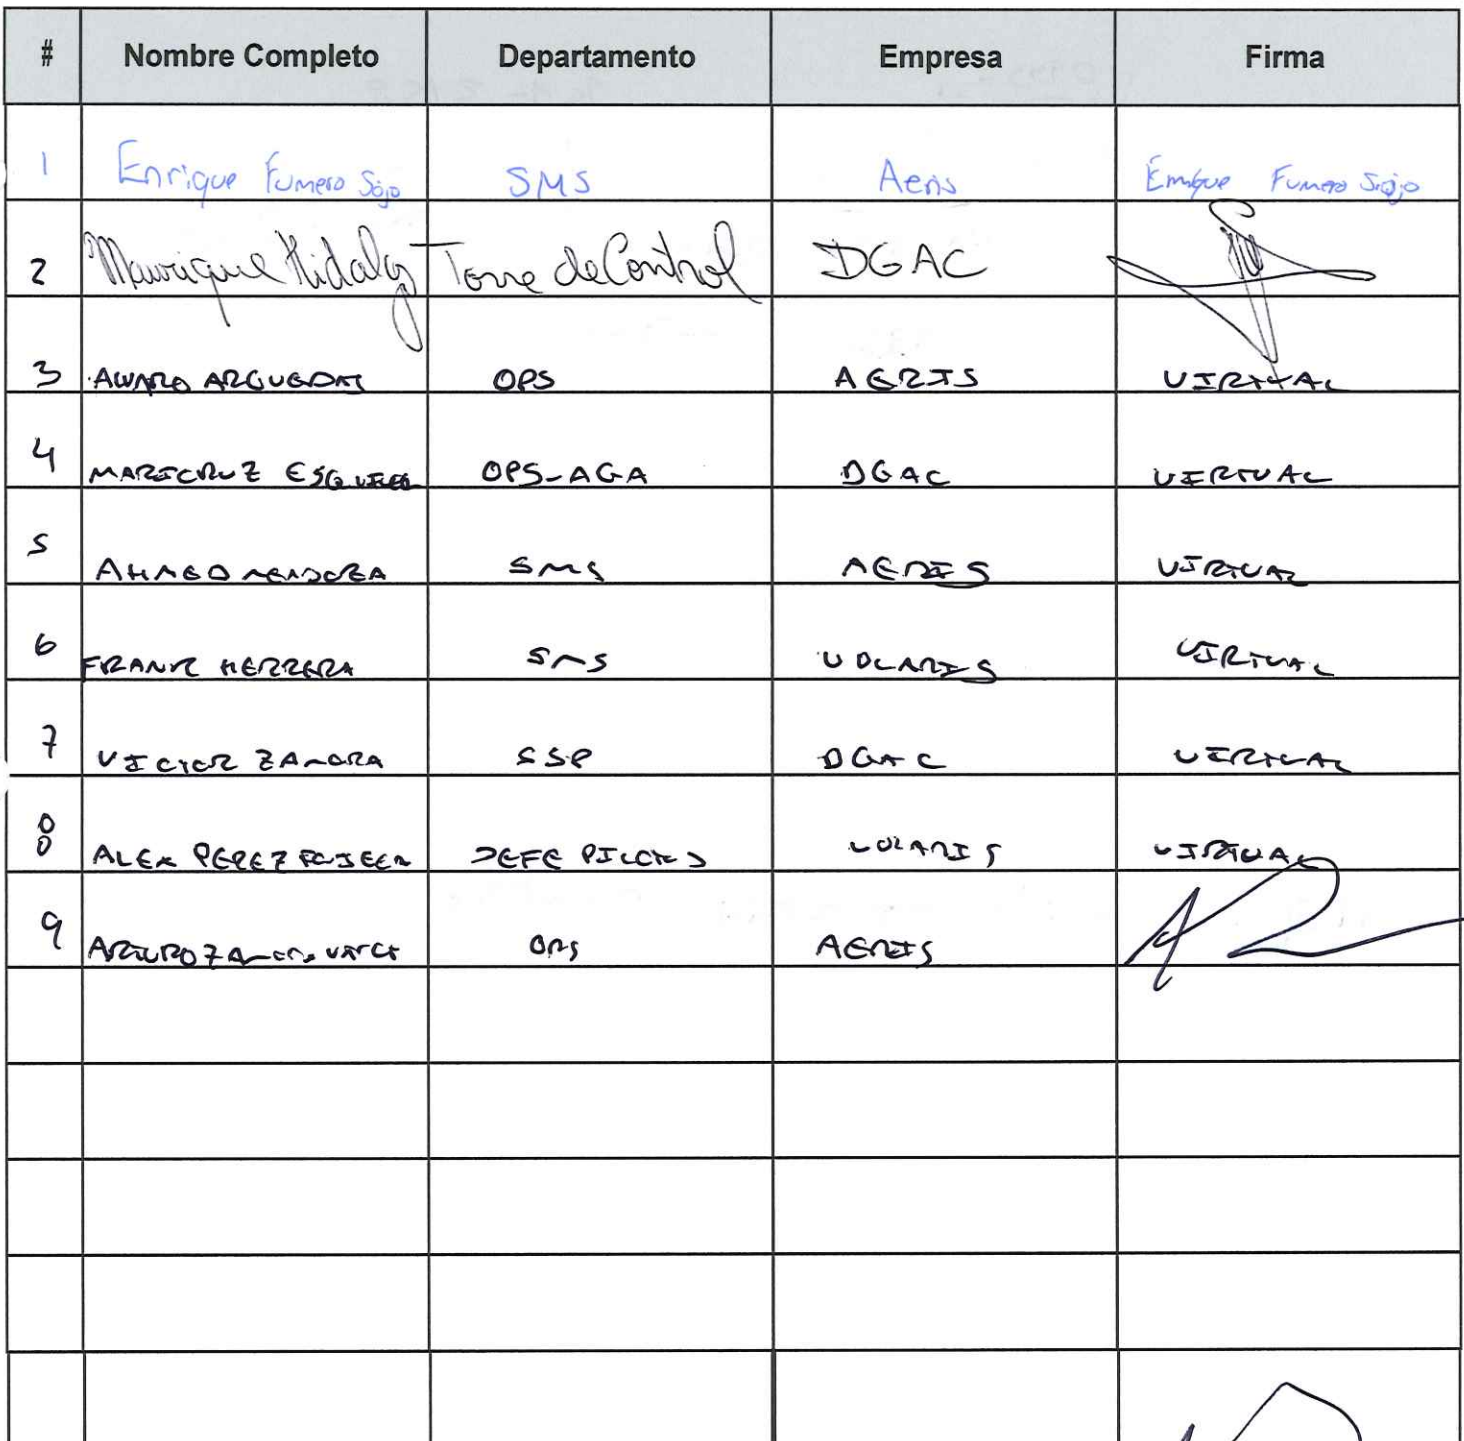 # Nombre Completo Departamento Empresa Firma
1 Enrique Fumero Sojo SMS Aeris Enrique Fumero Sojo
2 Manrique Hidalgo Torre de Control DGAC
3 ALVARO ARGUEDAS OPS AERIS VIRTUAL
4 MARICRUZ ESQUIVEL OPS-AGA DGAC VIRTUAL
5 AHMED MENDOZA SMS AERIS VIRTUAL
6 FRANK HERRERA SMS VOLARIS VIRTUAL
7 VICTOR ZAMORA SSP DGAC VIRTUAL
8 ALEX PEREZ JEFE PILOTOS VOLARIS VIRTUAL
9 ARTURO OPS AERIS